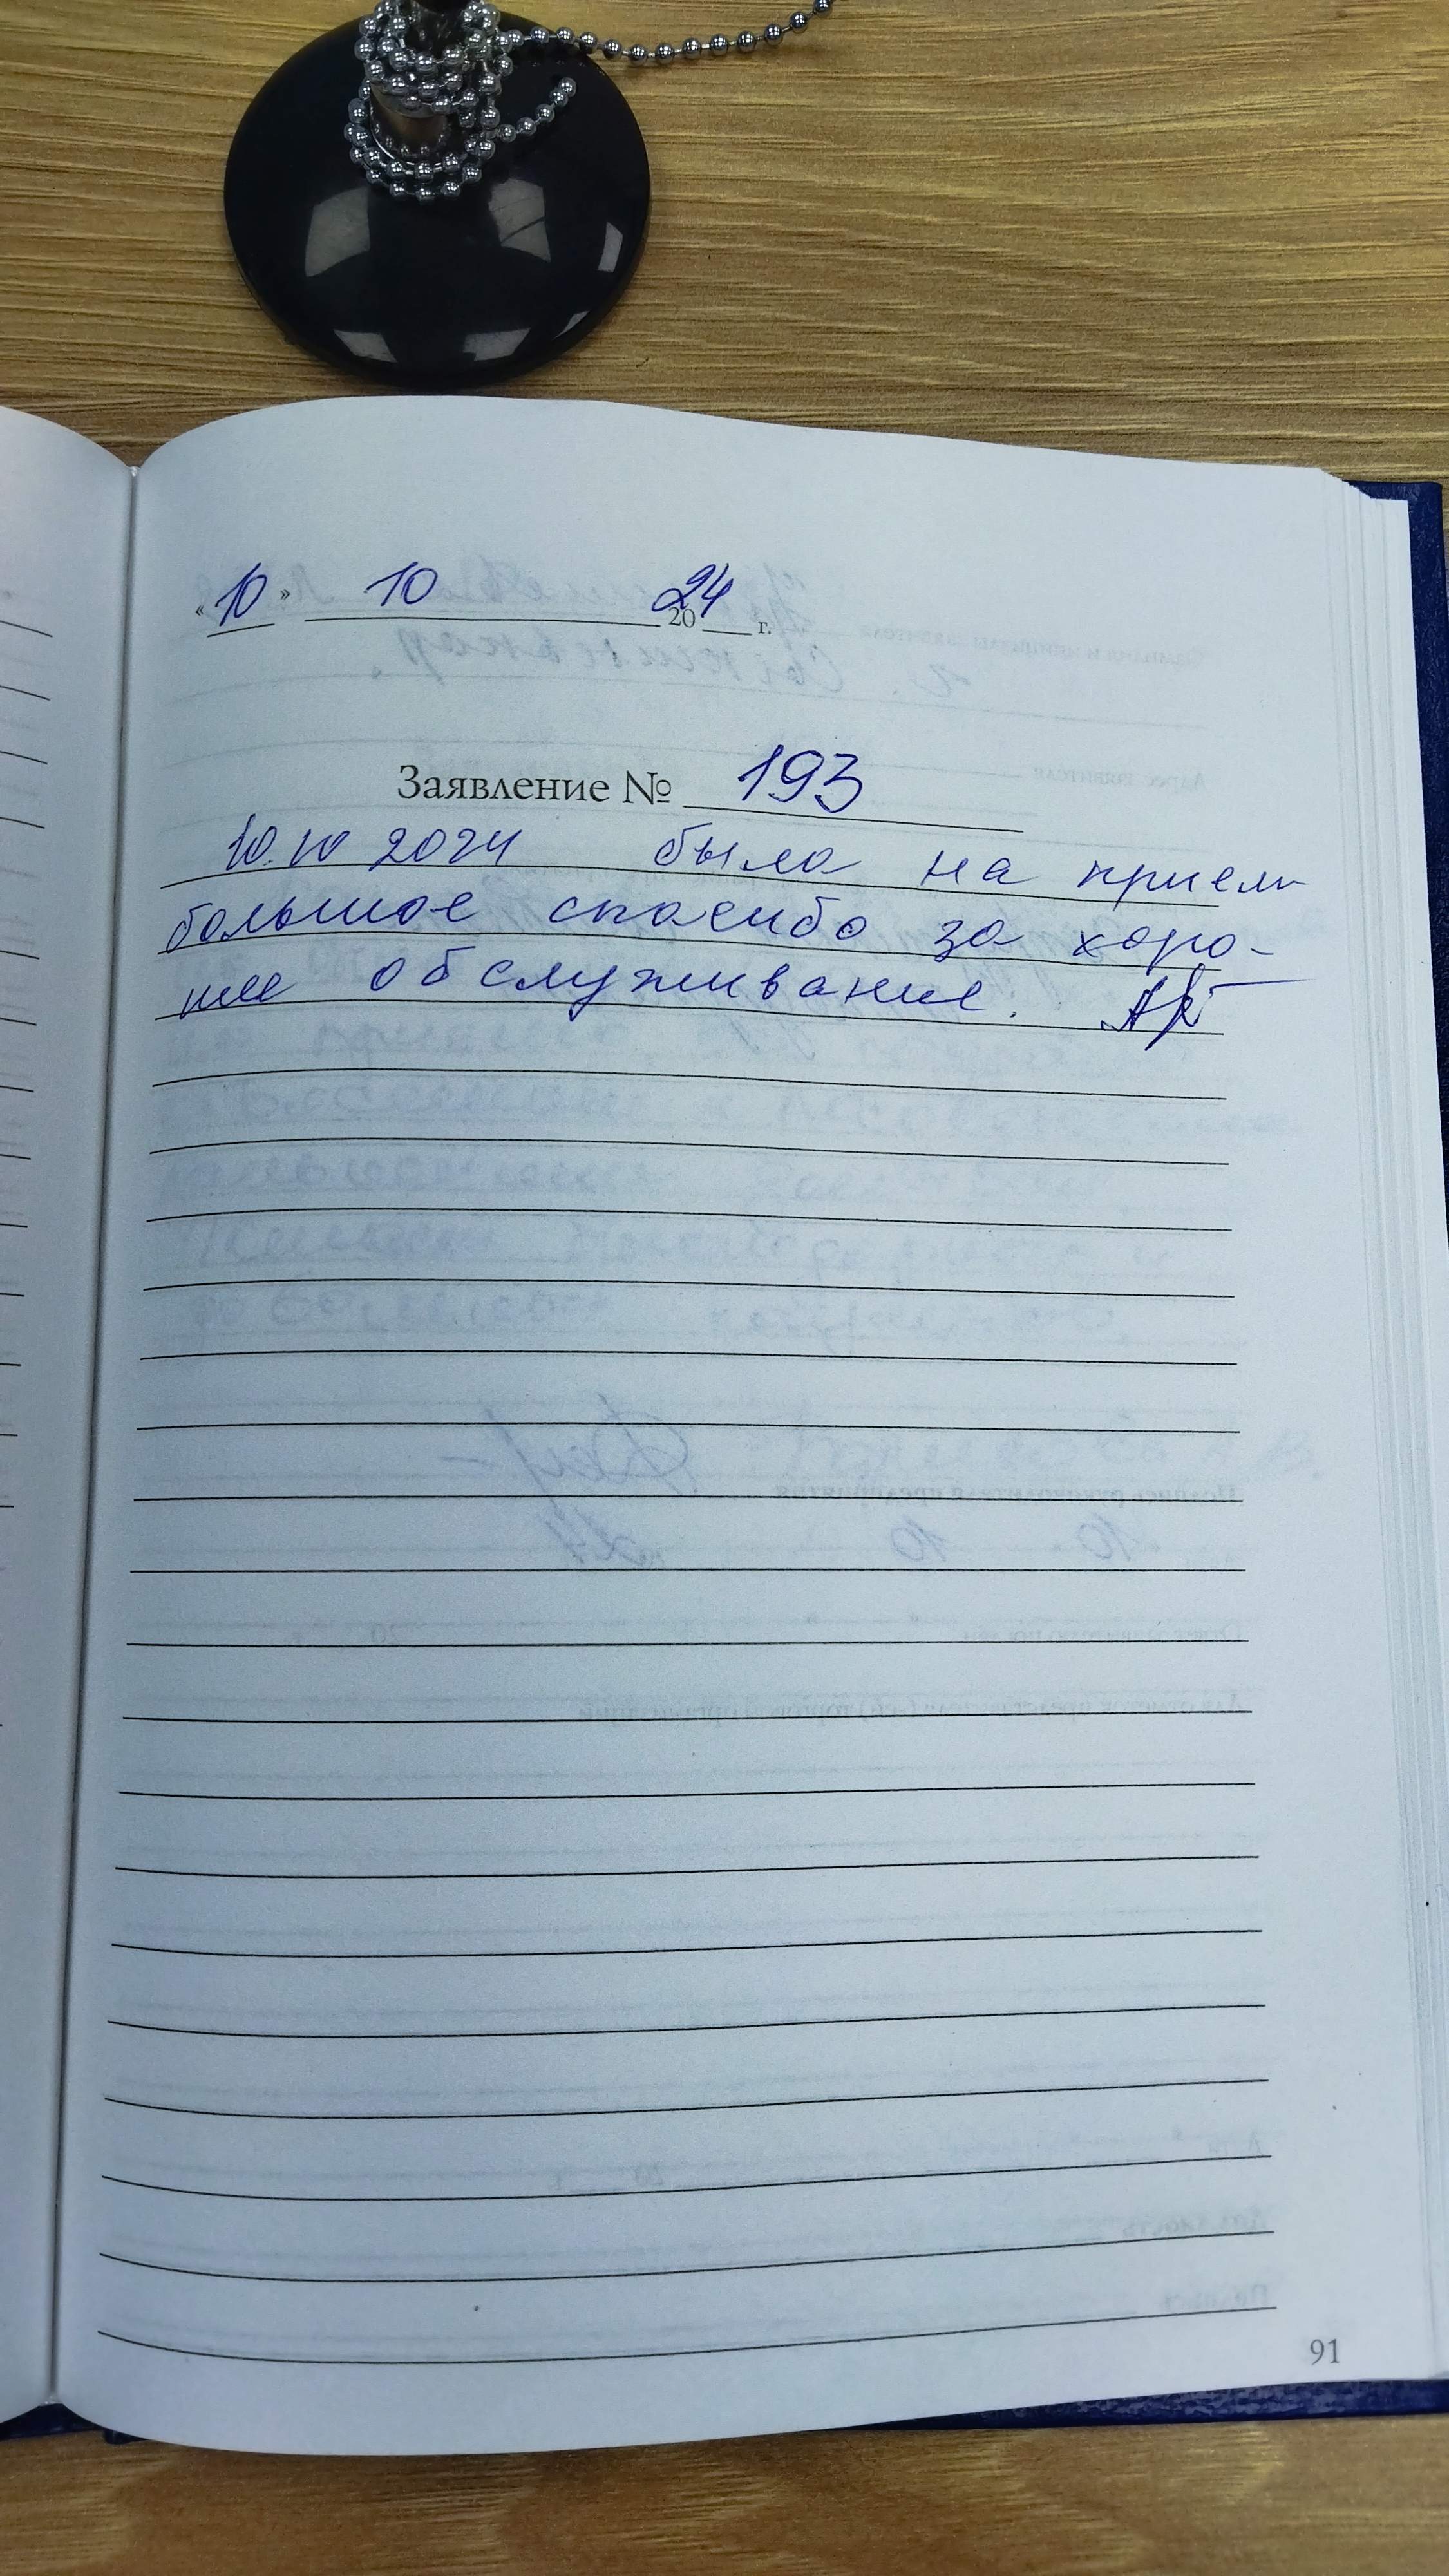 «10» 10 2024 г.
Заявление № 193
10.10 2024 была на прием
большое спасибо за хоро-
шее обслуживание.
91